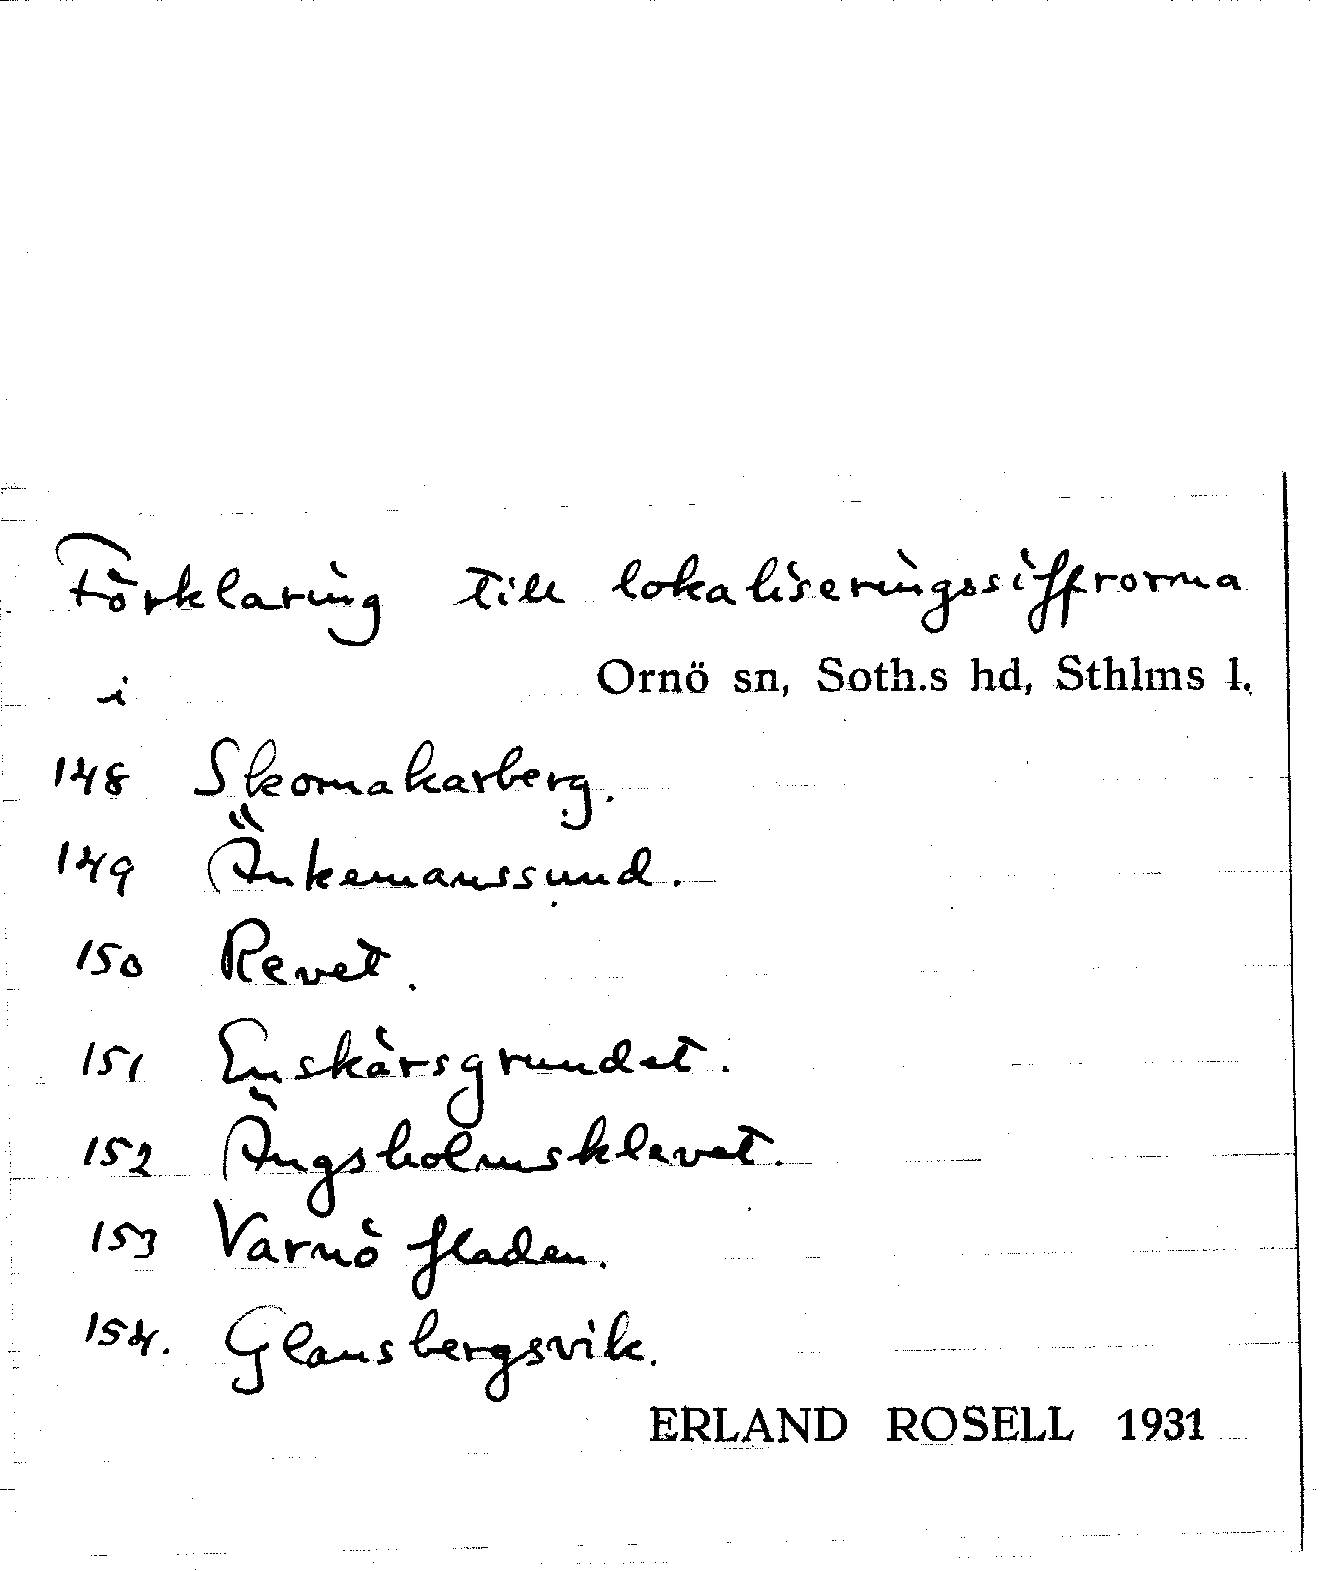 Förklaring till lokaliseringssiffrorna
i Ornö sn, Soth.s hd, Sthlms l.
148 Skomakarberg.
149 Änkemanssund.
150 Revet.
151 Enskärsgrundet.
152 Ängsholmsklevet.
153 Varnö fladen.
154. Glansbergsvik.
ERLAND ROSELL 1931